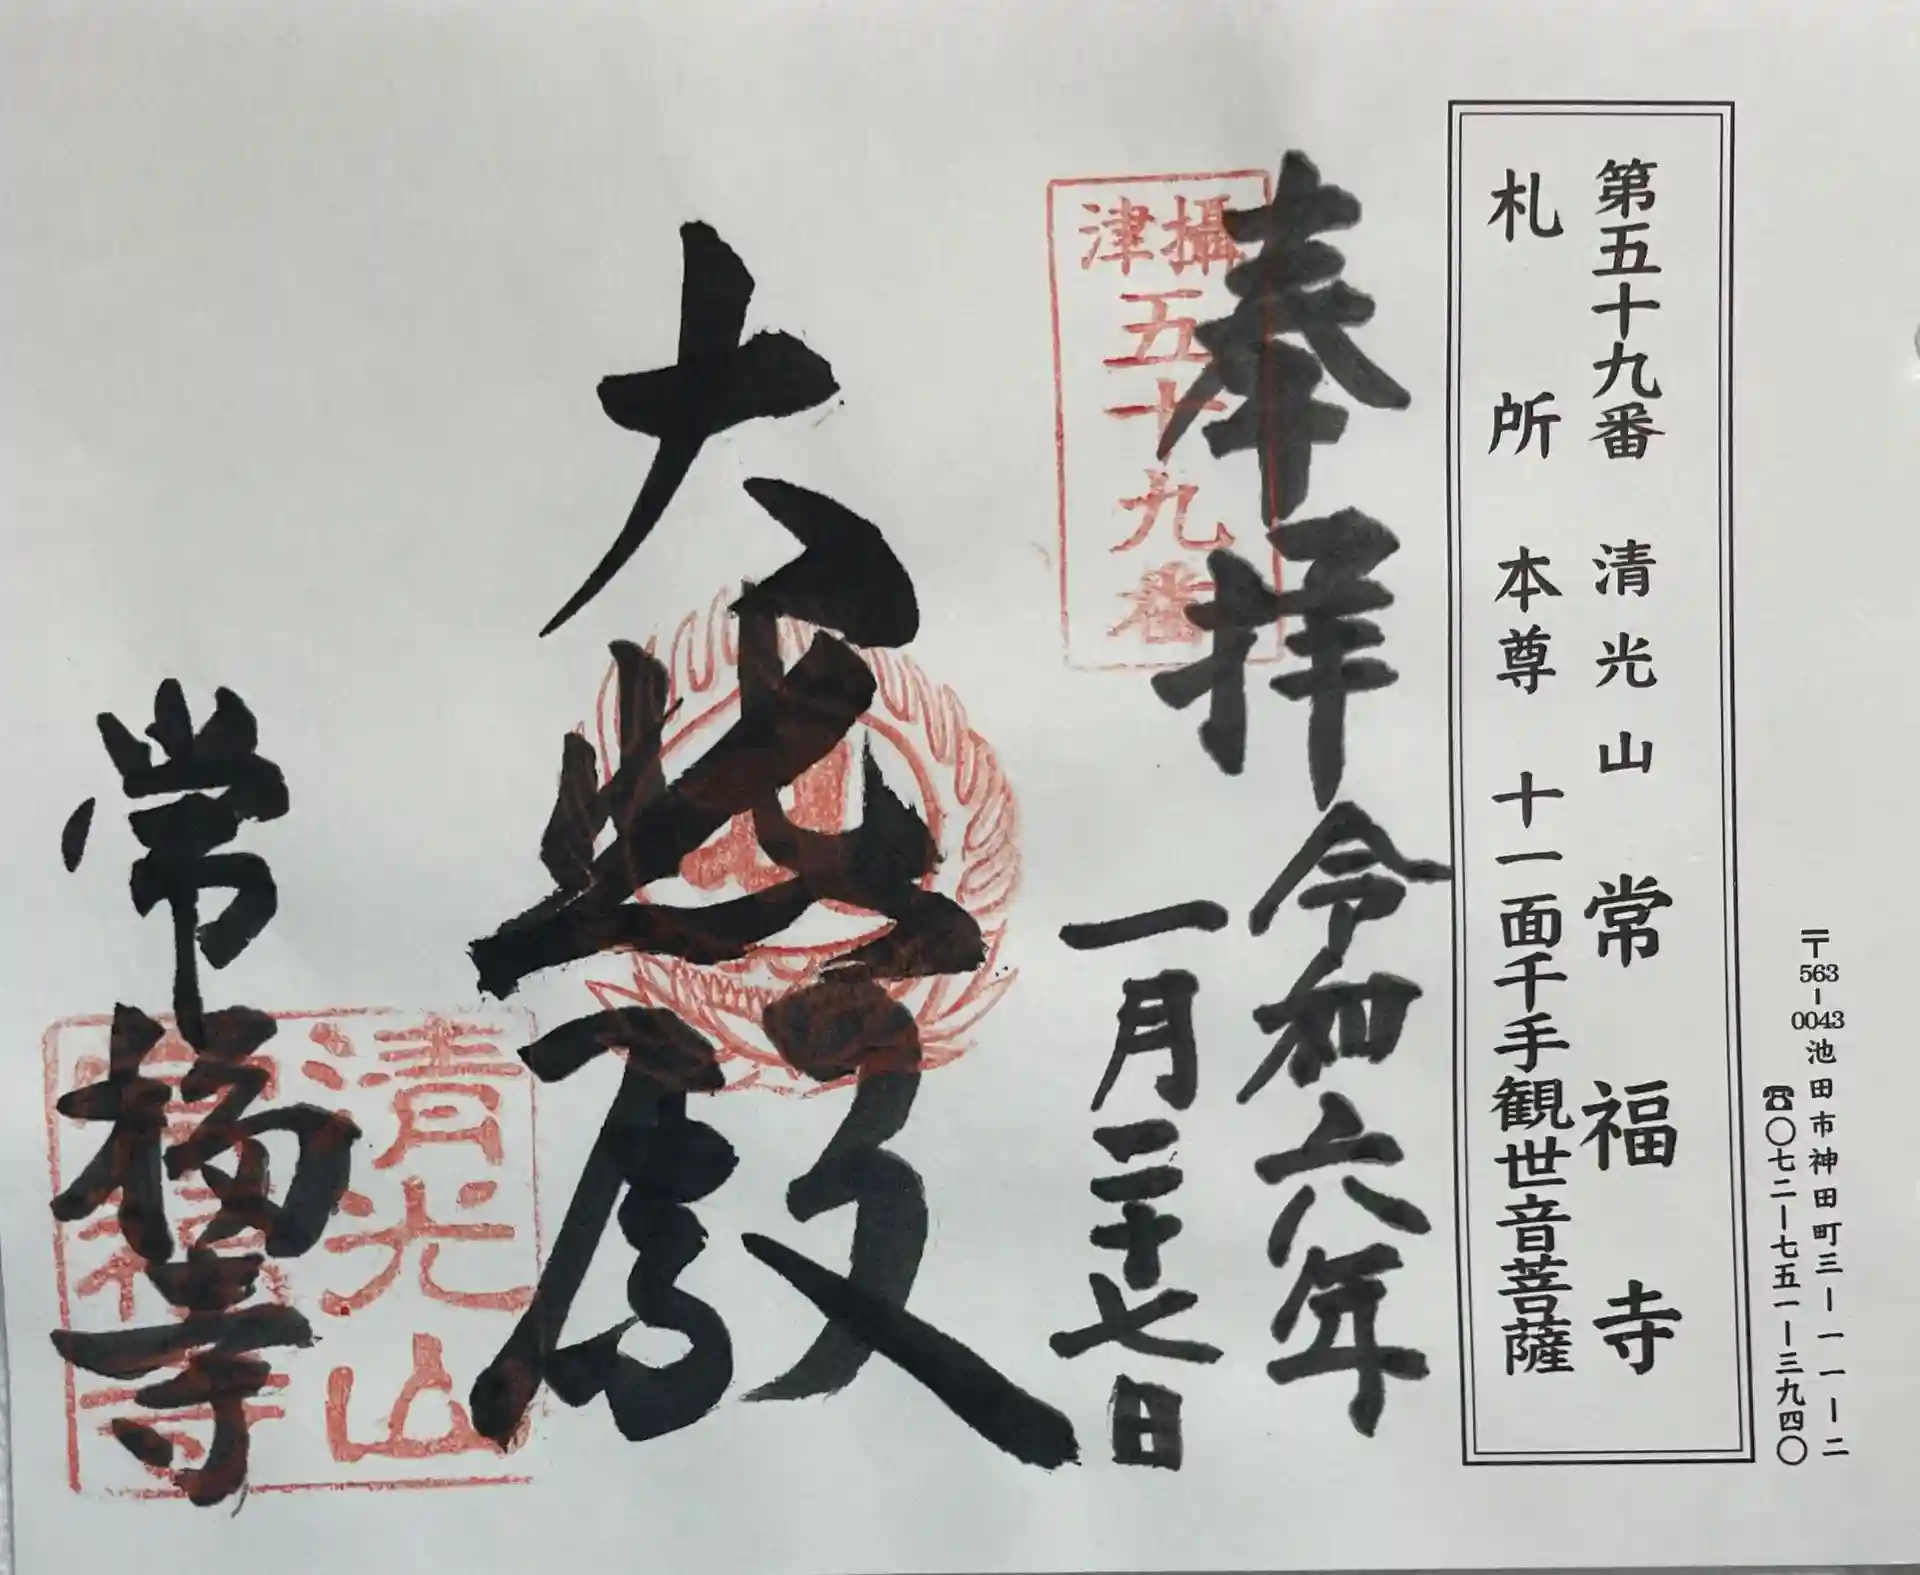 〒563-0043池田市神田町三ー一一ー二
☎〇七二ー七五一ー三九四〇
第五十九番 清光山 常福寺
札所 本尊 十一面千手観世音菩薩
奉拝 令和六年
一月二十七日
攝津
五十九番
大悲殿
常福寺
清光山
常福寺